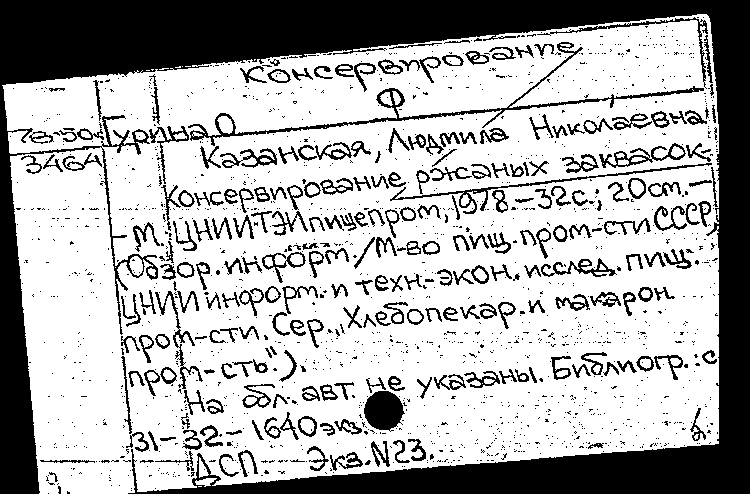 Консервирование
Ф
78-50
3464
Гурина, О
Казанская, Людмила Николаевна
Консервирование ржаных заквасок.-
- М. ЦНИИТЭИпищепром, 1978.-32с.; 20см.-
(Обзор. информ./М-во пищ. пром-сти СССР,
ЦНИИ информ. и техн.-экон. исслед. пищ.
пром-сти. Сер. „Хлебопекар. и макарон.
пром-сть").
На обл. авт. не указаны. Библиогр.: с
31-32.- 1640экз.
ДСП. Экз. N23.